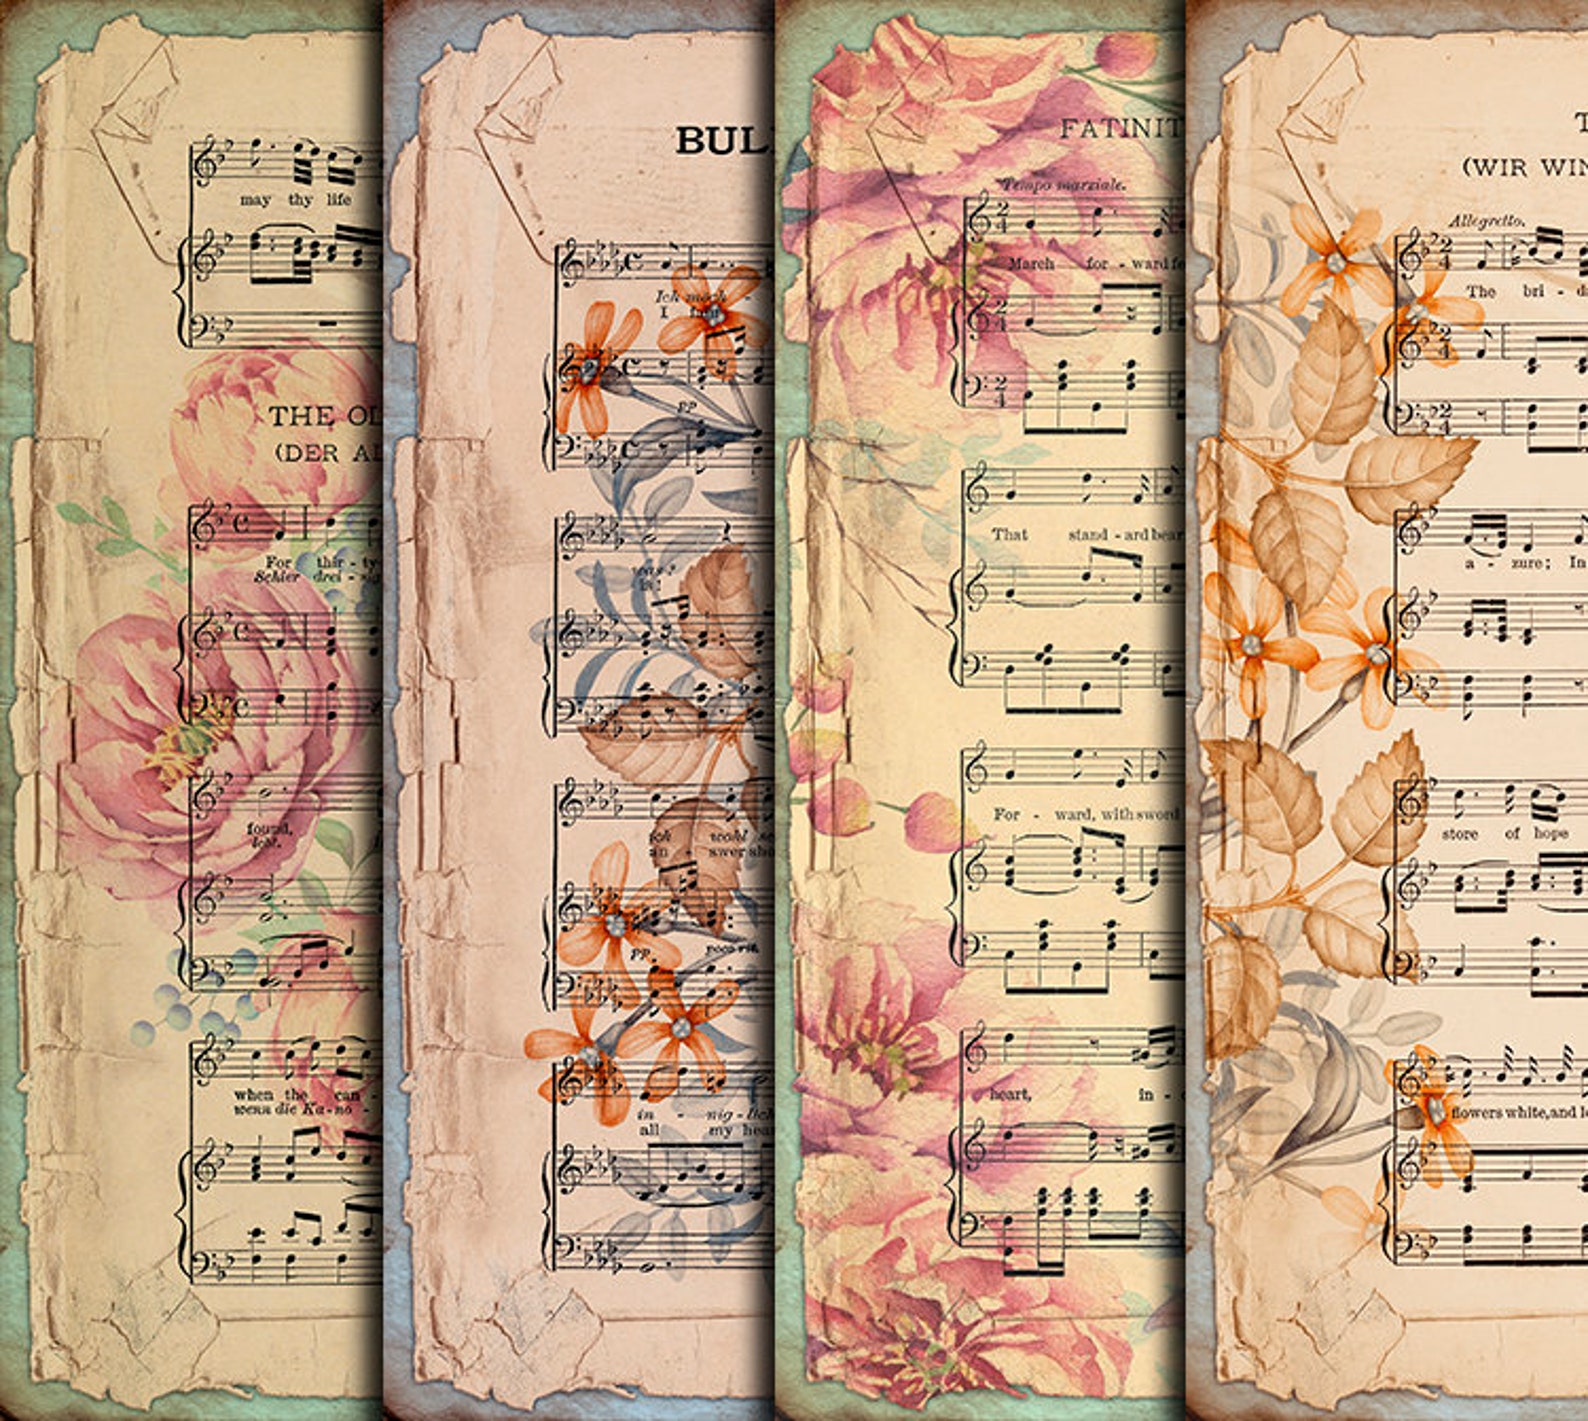 may thy life
THE OL
(DER AL
For thir - ty
Schier drei - sig
found,
lebt.
when the can -
wenn die Ka - no -
BUL
Ich möch -
I fain
pp
was?
is!
ich wohl
an - swer she
pp.
poco rit.
in - nig - lich
all my hear
FATINIT
Tempo marziale.
March for - ward fe
That stand - ard bear
For - ward, with sword
heart, in -
T
(WIR WIN
Allegretto.
The bri - d
a - zure; In
store of hope
flowers white, and l